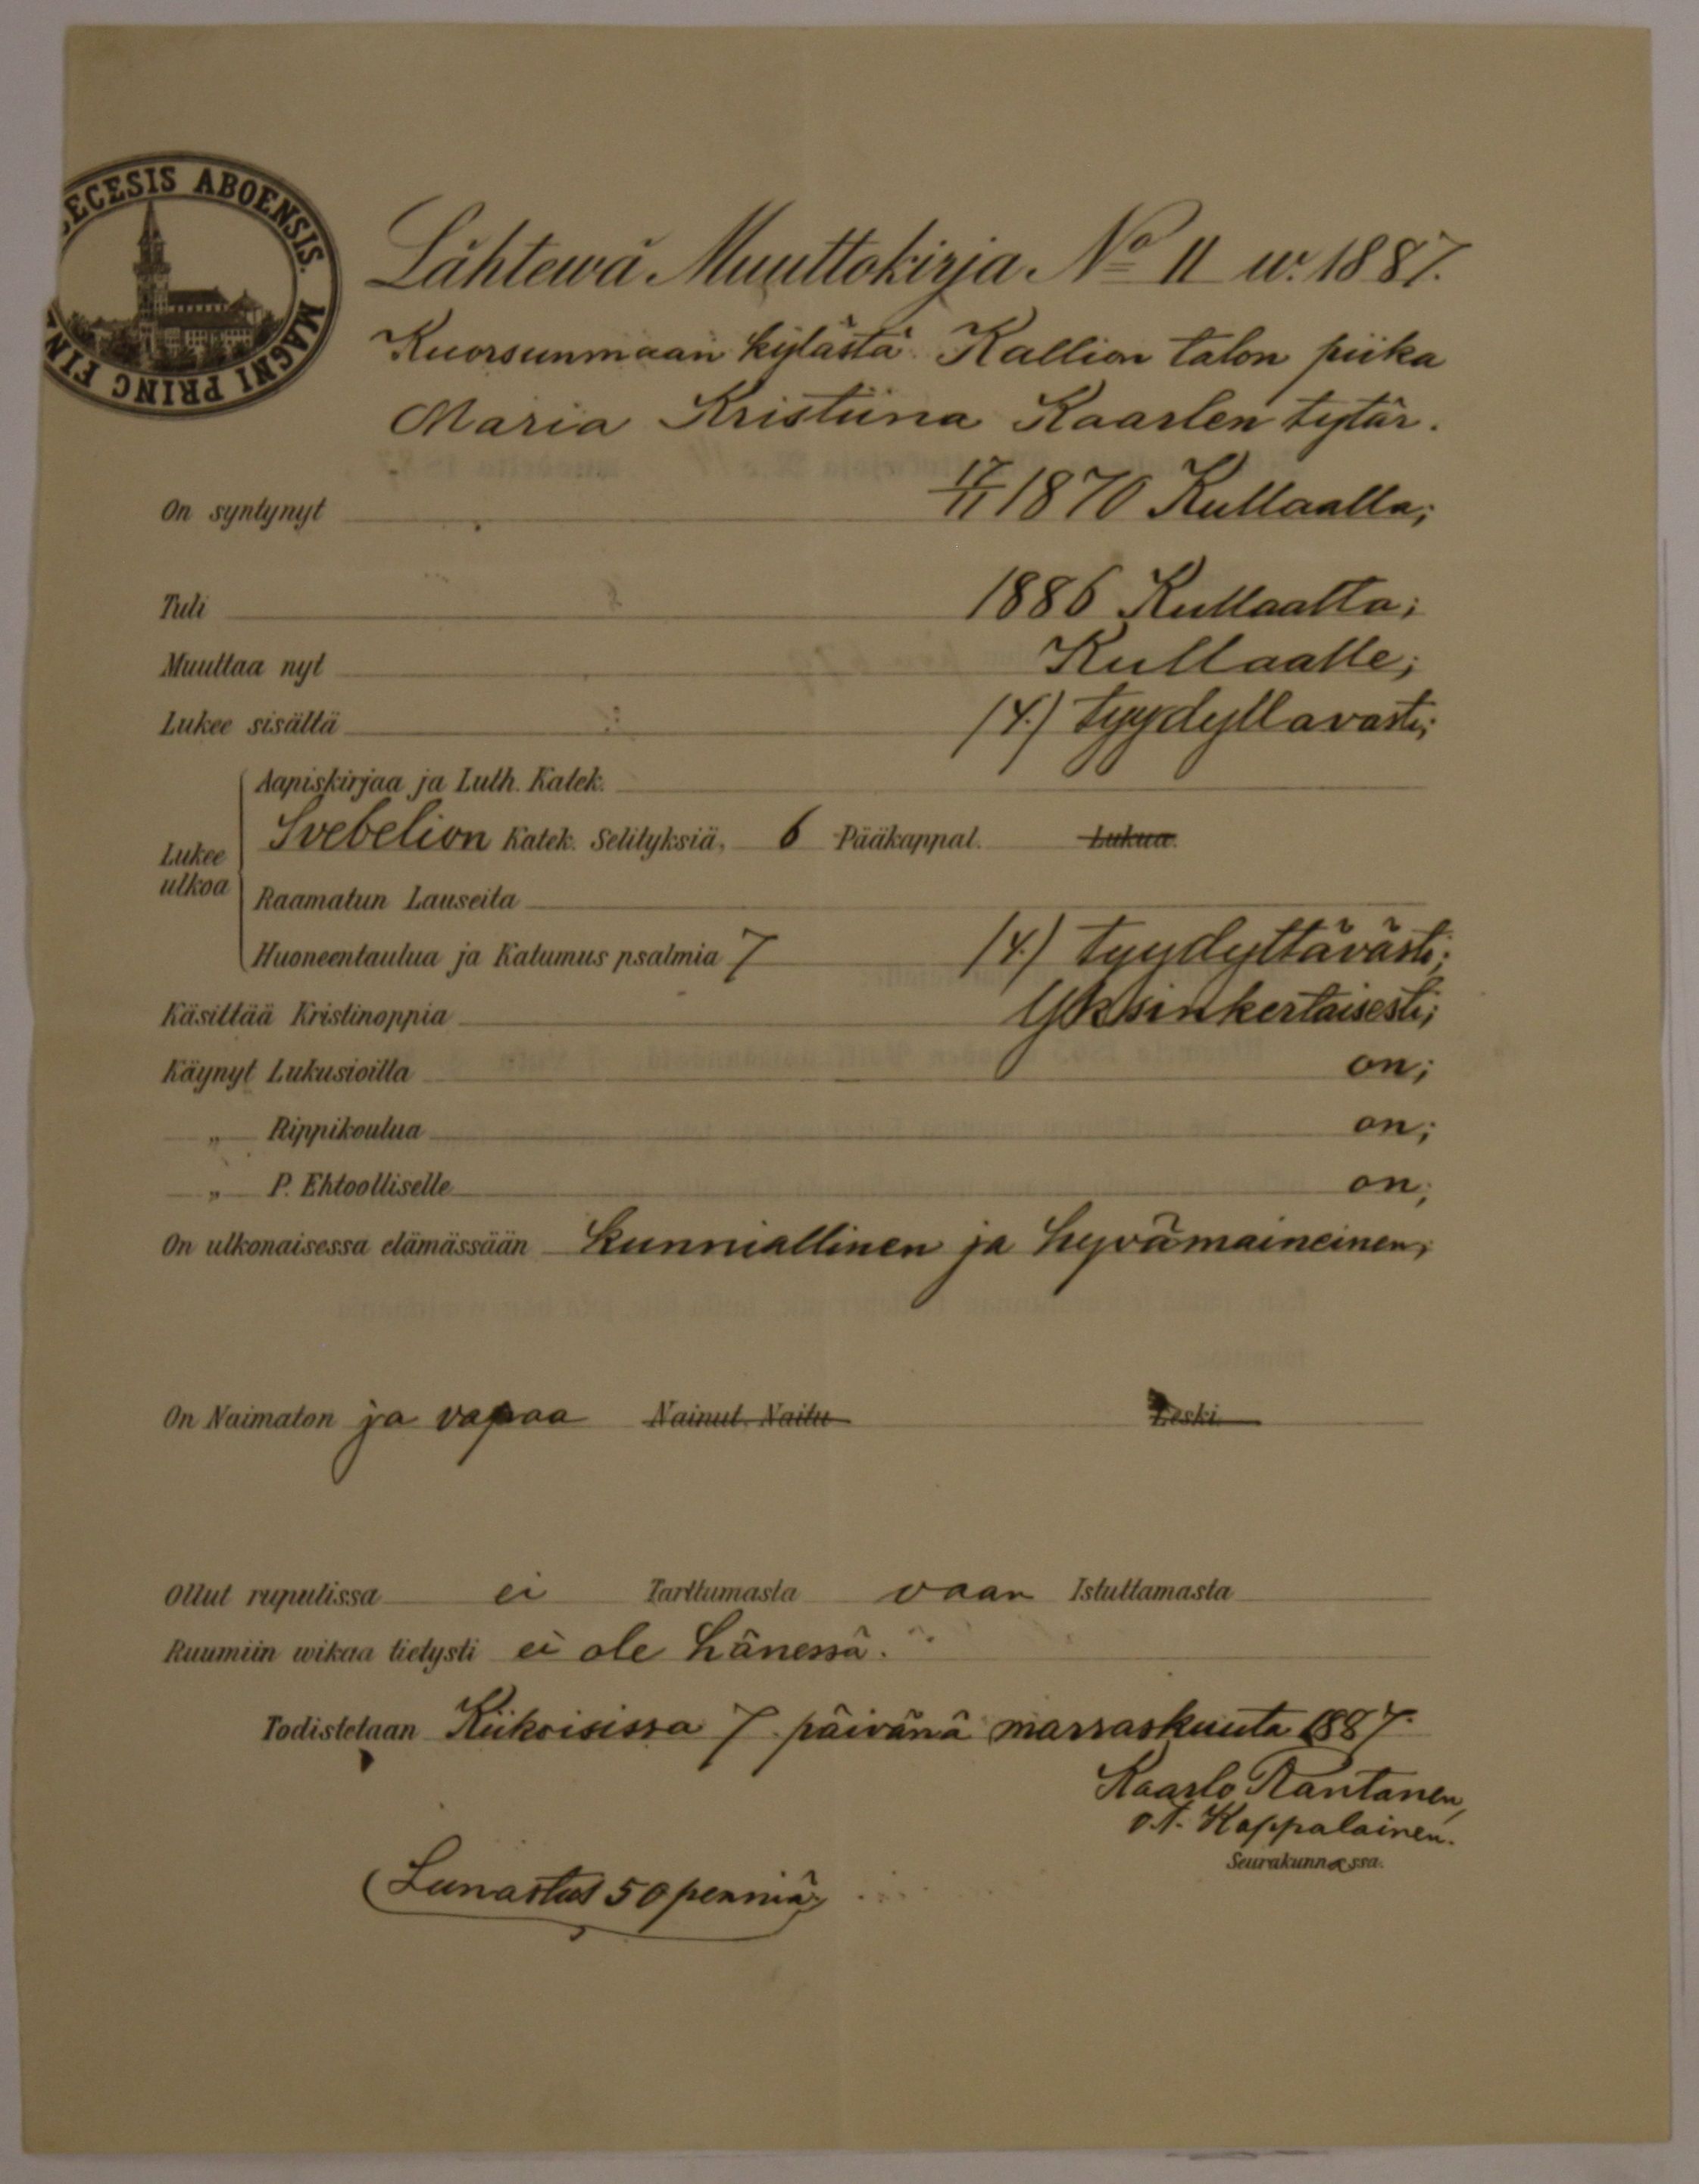 ECESIS ABOENSIS. MAGNI PRINC FIN
Lähtewä Muuttokirja No 11 w. 1887.
Kuorsunmaan kylästä Kallion talon piika
Maria Kristiina Kaarlen tytär.
On syntynyt 17/11 1870 Kullaalla;
Tuli 1886 Kullaalta;
Muuttaa nyt Kullaalle;
Lukee sisältä (4.) tyydyllavasti;
Aapiskirjaa ja Luth. Katek.
Lukee ulkoa Svebelion Katek. Selityksiä, 6 Pääkappal. Lukua.
Raamatun Lauseita
Huoneentaulua ja Katumus psalmia 7 (4.) tyydyttävästi;
Käsittää Kristinoppia Yksinkertaisesti;
Käynyt Lukusioilla on;
„ Rippikoulua on;
„ P. Ehtoolliselle on;
On ulkonaisessa elämässään kunniallinen ja hyvämaineinen;
On Naimaton ja vapaa Nainut, Naitu Leski.
Ollut rupulissa ei Tarttumasta vaan Istuttamasta
Ruumiin wikaa tietysti ei ole hänessä.
Todistetaan Kiikoisissa 7 päivänä marraskuuta 1887.
Kaarlo Rantanen,
v. t. Kappalainen.
Seurakunnassa.
(Lunastus 50 penniä)